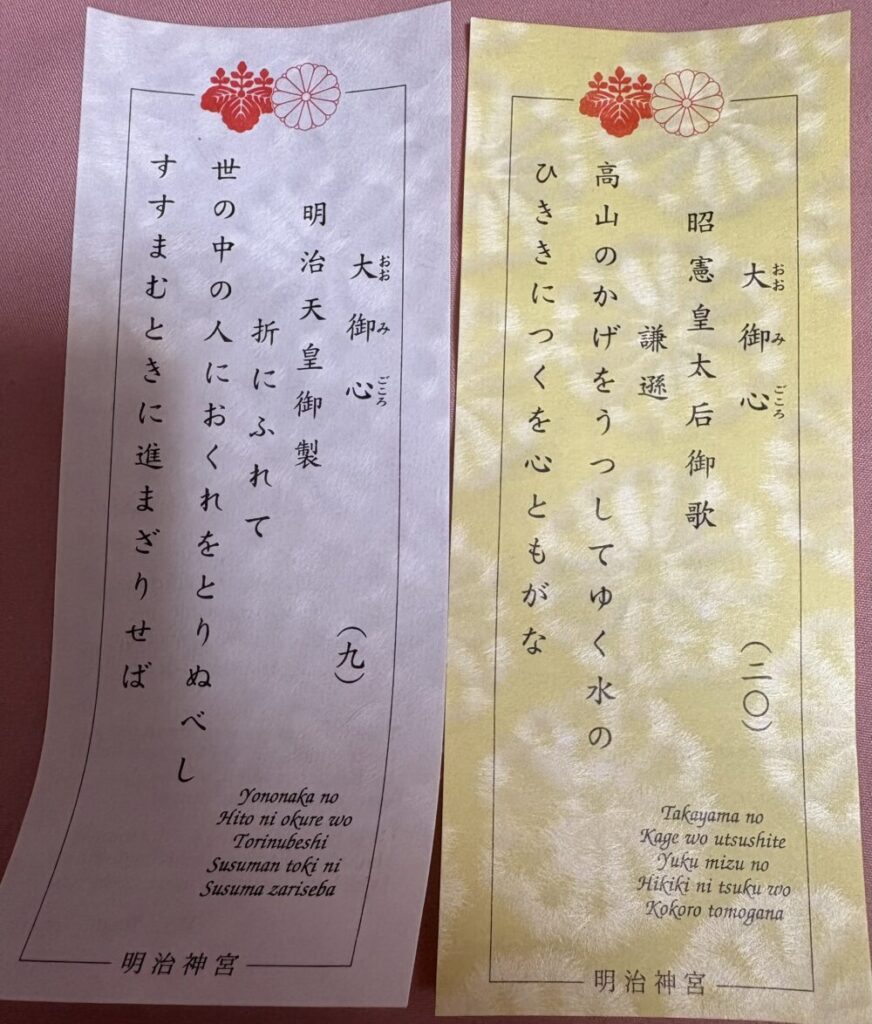 大御心
おおみごころ
(九)
明治天皇御製
折にふれて
世の中の人におくれをとりぬべし
すすまむときに進まざりせば
Yononaka no
Hito ni okure wo
Torinubeshi
Susuman toki ni
Susuma zariseba
明治神宮
大御心
おおみごころ
(二〇)
昭憲皇太后御歌
謙遜
高山のかげをうつしてゆく水の
ひききにつくを心ともがな
Takayama no
Kage wo utsushite
Yuku mizu no
Hikiki ni tsuku wo
Kokoro tomogana
明治神宮